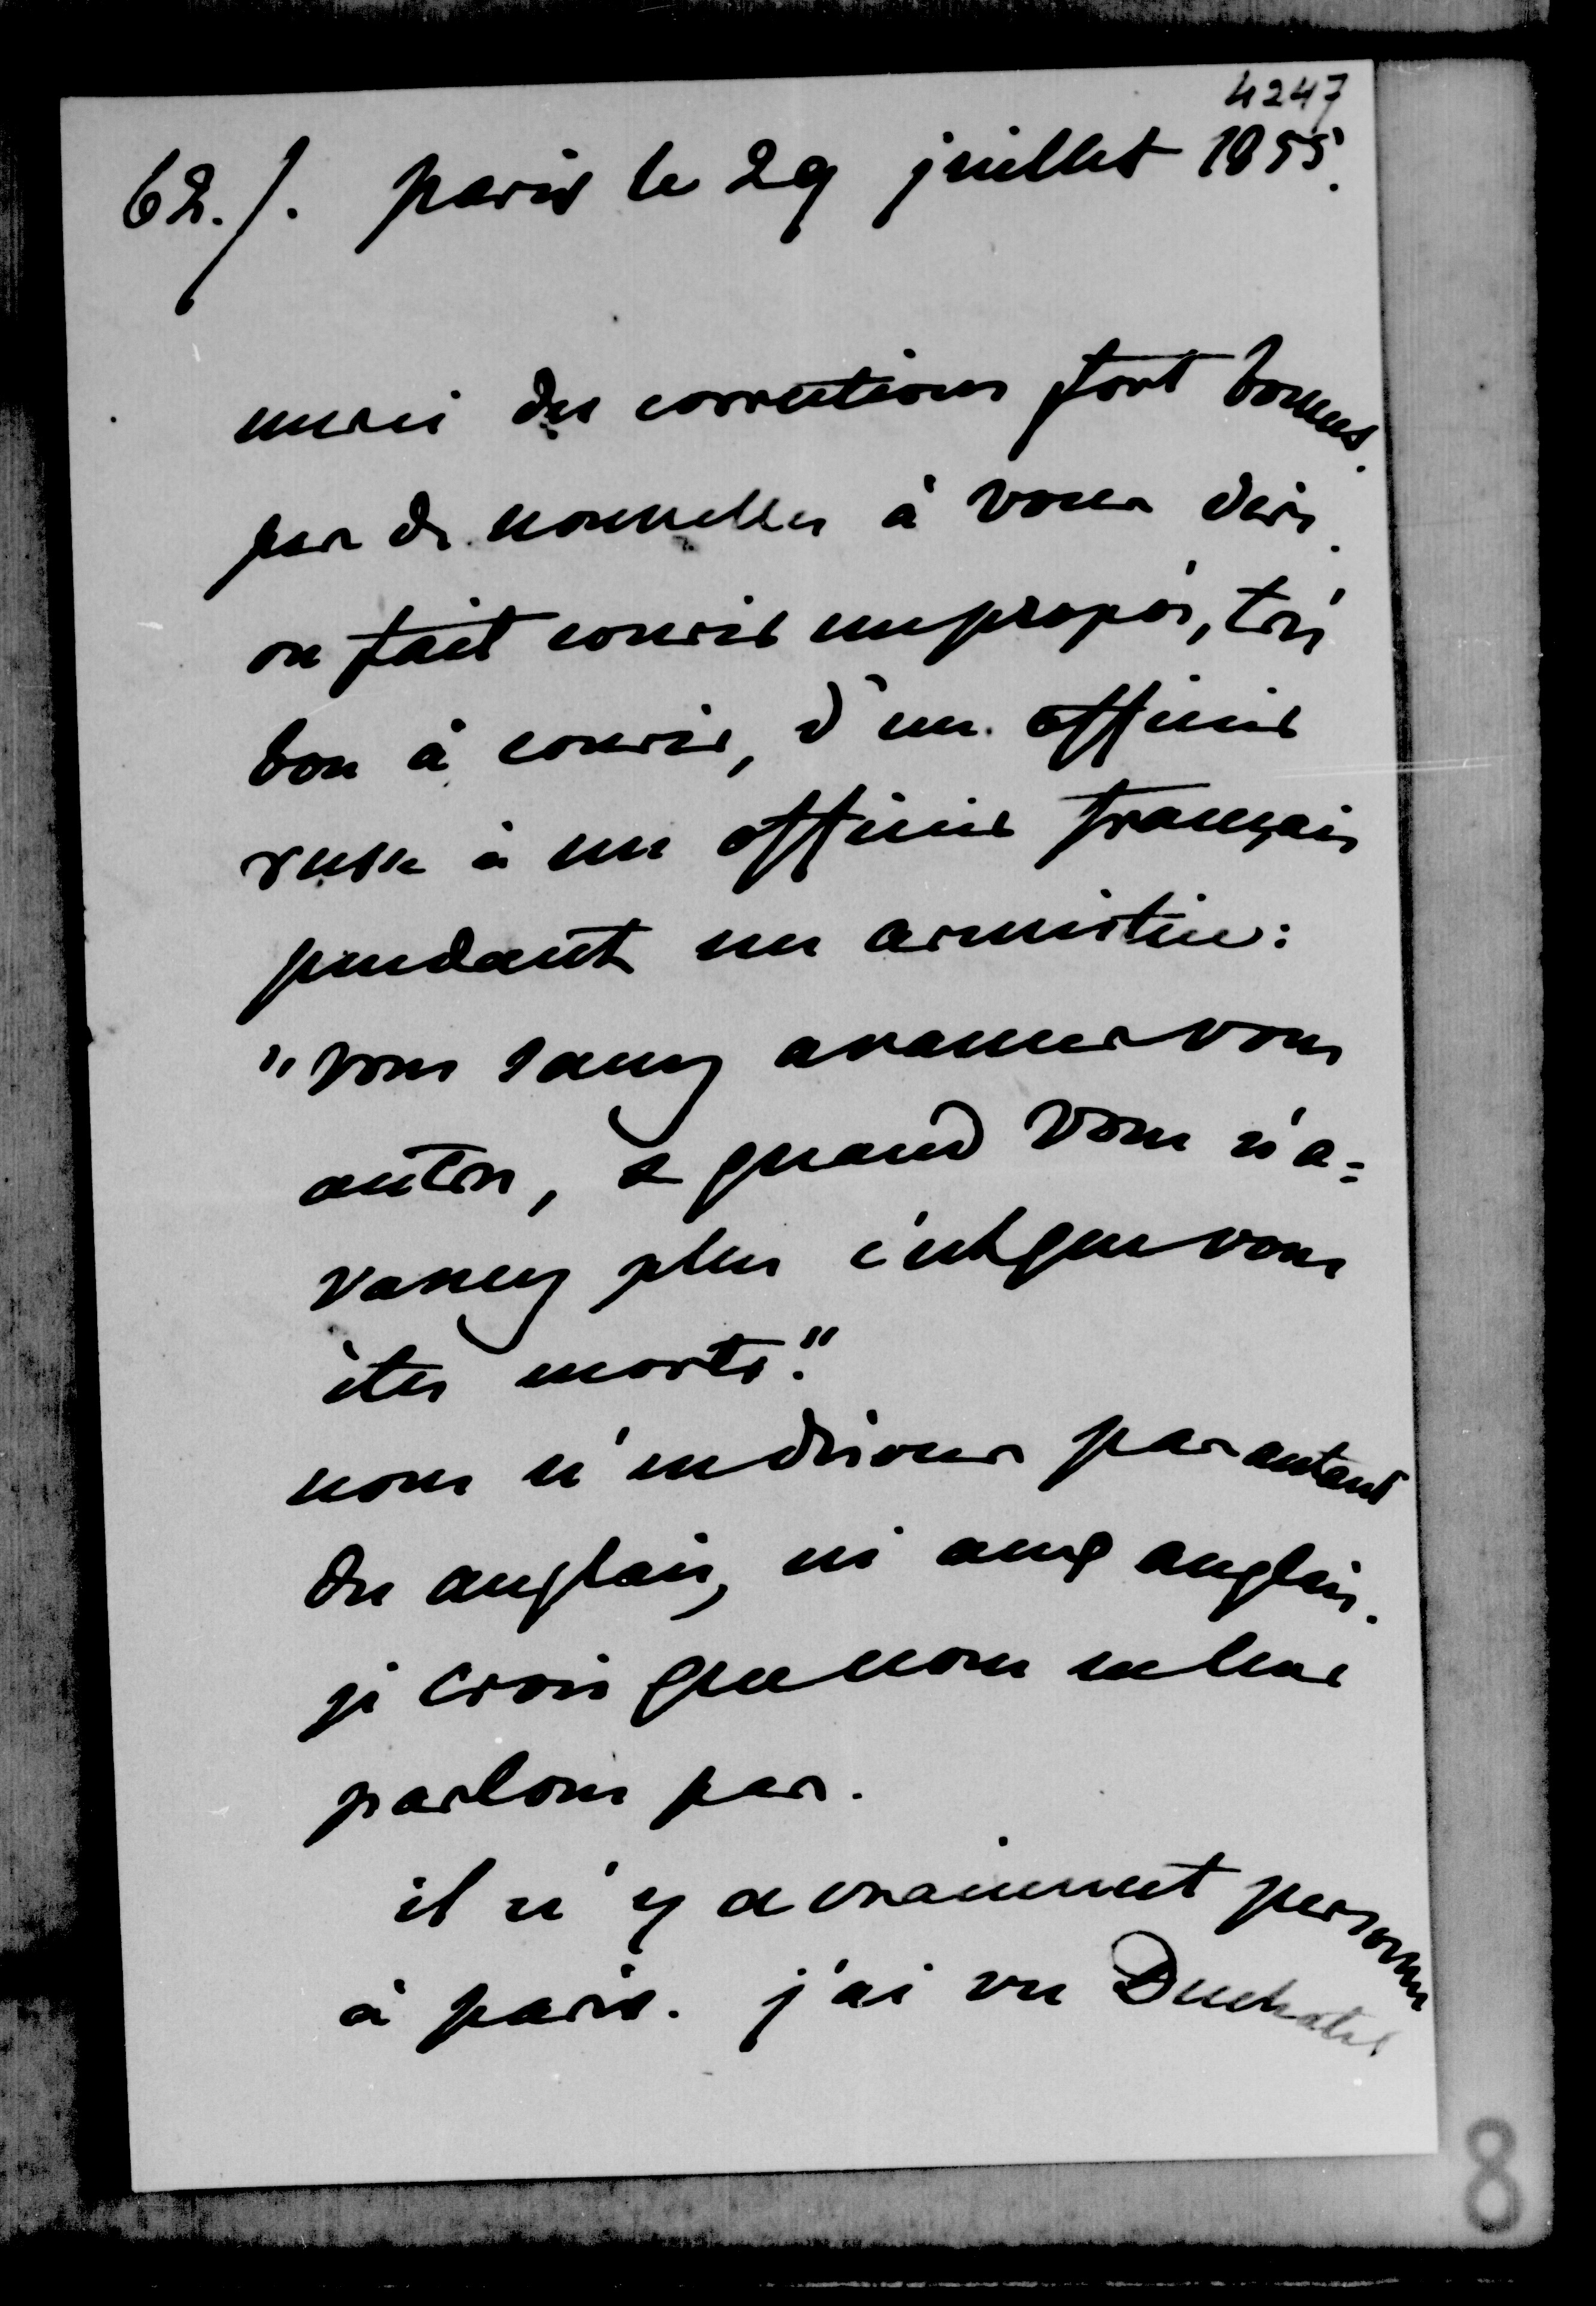 4247
62./. paris le 29 juillet 1855.
merci des corrections fort bonnes.
pas de nouvelles à vous dire.
on fait courir un propos, très
bon à courir, d'un officier
russe à un officier français
pendant un armistice:
"vous savez avancer vous
autres, & quand vous n'a=
vancez plus c'est que vous
êtes morts."
nous n'en disons pas autant
des anglais, ni aux anglais.
je crois que nous ne leur
parlons pas.
il n'y a vraiment personne
à paris. j'ai vu Duchatel
8